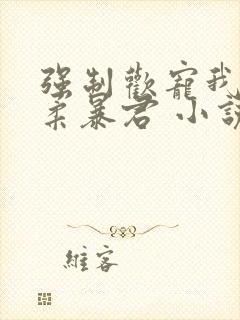 强制歡寵我
柔暴君 小說
維客